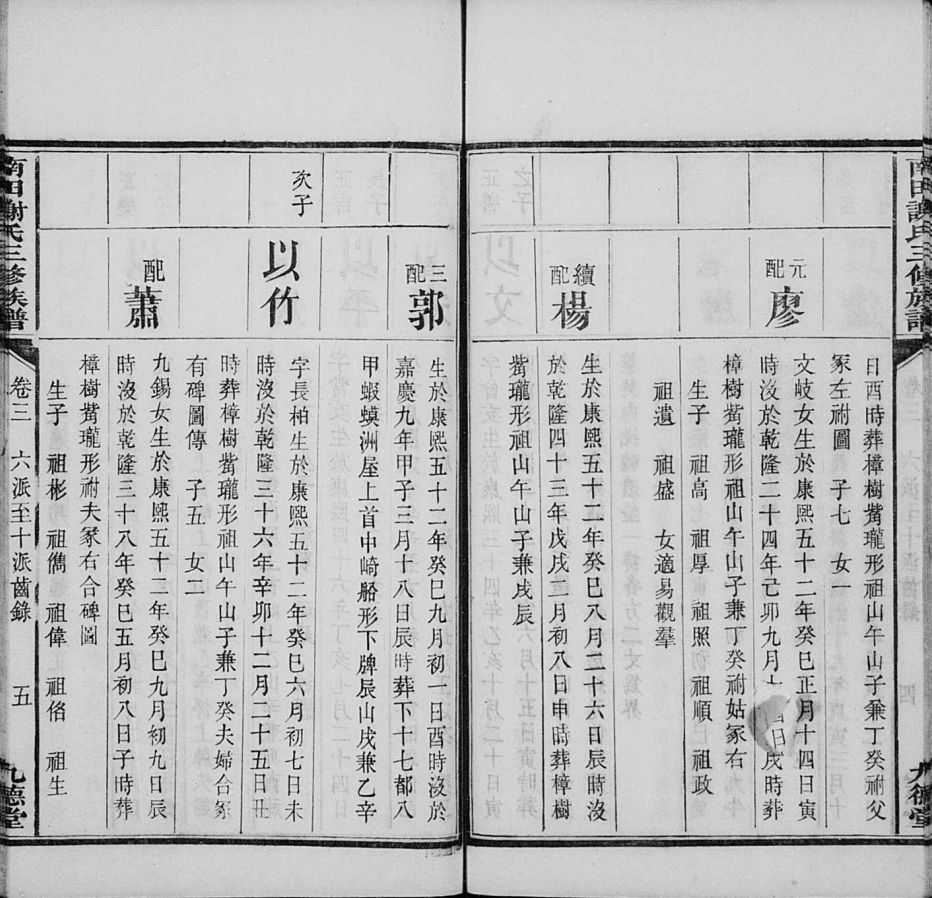 南田謝氏三修族譜
九德堂
日酉時葬樟樹觜瓏形祖山午山子兼丁癸祔父
冢左祔圖 子七 女一
元配廖
文岐女生於康熙五十二年癸巳正月十四日寅
時沒於乾隆二十四年己卯九月十 日戌時葬
樟樹觜瓏形祖山午山子兼丁癸祔姑冢右
生子 祖高 祖厚 祖照 祖順 祖政
祖遺 祖盛 女適易觀羣
續配楊
生於康熙五十二年癸巳八月二十六日辰時沒
於乾隆四十三年戊戌二月初八日申時葬樟樹
觜瓏形祖山午山子兼戌辰
三配郭
生於康熙五十二年癸巳九月初一日酉時沒於
嘉慶九年甲子三月十八日辰時葬下十七都八
甲蝦蟆洲屋上首中崎船形下牌辰山戌兼乙辛
次子
以竹
字長柏生於康熙五十二年癸巳六月初七日未
時沒於乾隆三十六年辛卯十二月二十五日丑
時葬樟樹觜瓏形祖山午山子兼丁癸夫婦合冢
有碑圖傳 子五 女二
配蕭
九錫女生於康熙五十二年癸巳九月初九日辰
時沒於乾隆三十八年癸巳五月初八日子時葬
樟樹觜瓏形祔夫冢右合碑圖
生子 祖彬 祖儁 祖偉 祖俗 祖生
南田謝氏三修族譜
卷三 六派至十派齒錄 五
九德堂